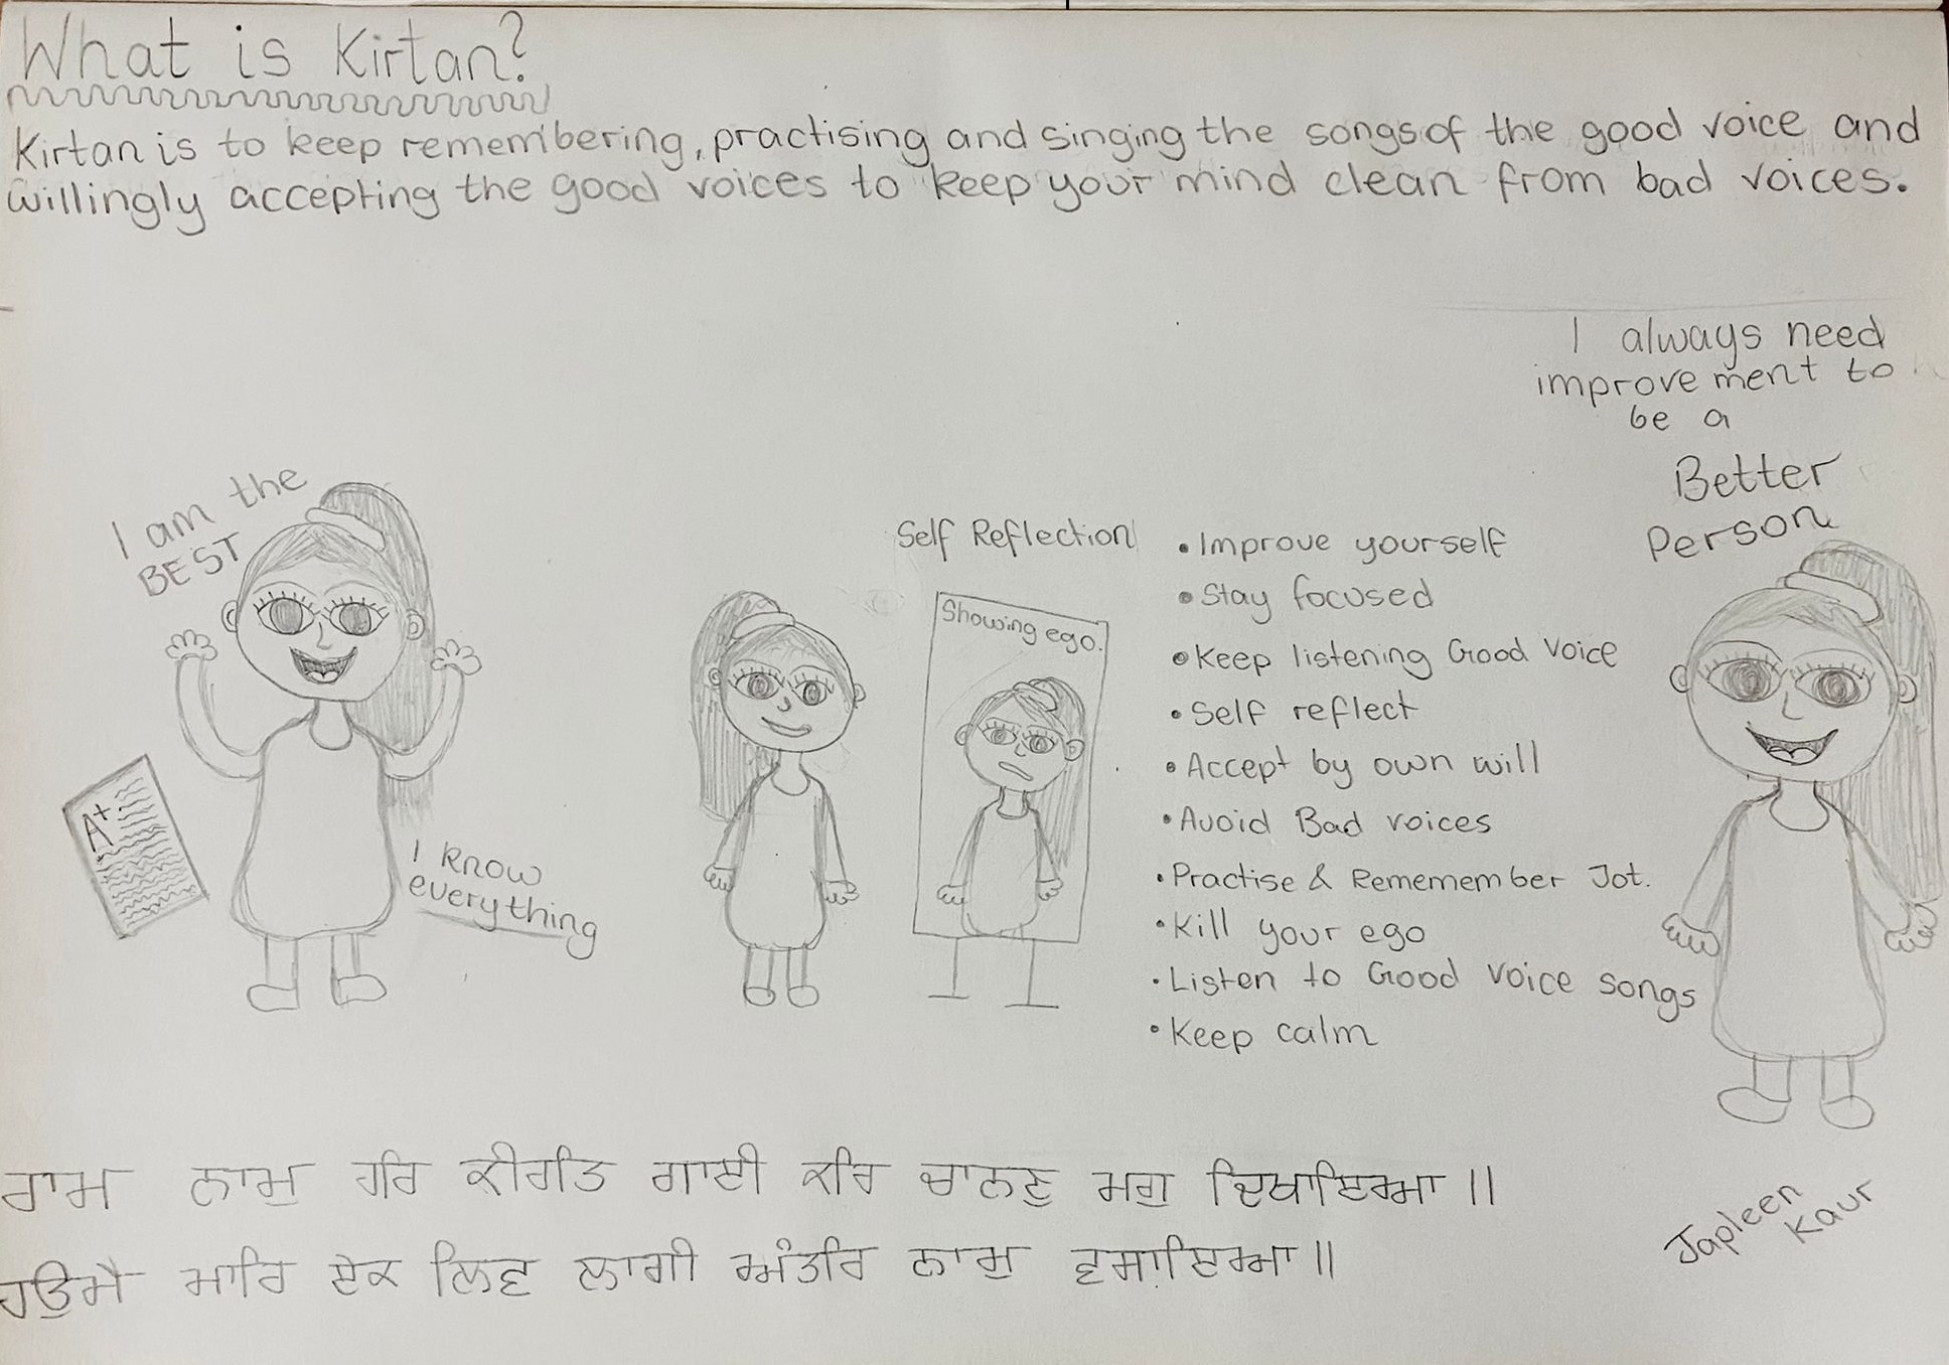 What is Kirtan?
Kirtan is to keep remembering, practising and singing the songs of the good voice and
willingly accepting the good voices to keep your mind clean from bad voices.
I always need
improvement to
be a
Better
Person
I am the
BEST
A+
I know
everything
Self Reflection
Showing ego.
• Improve yourself
• Stay focused
• Keep listening Good Voice
• Self reflect
• Accept by own will
• Avoid Bad voices
• Practise & Rememember Jot.
• Kill your ego
• Listen to Good Voice songs
• Keep calm
ਰਾਮ ਨਾਮੁ ਹਰਿ ਕੀਰਤਿ ਗਾਈ ਕਰਿ ਚਾਨਣੁ ਮਗੁ ਦਿਖਾਇਆ ॥
ਹਉਮੈ ਮਾਰਿ ਏਕ ਲਿਵ ਲਾਗੀ ਅੰਤਰਿ ਨਾਮੁ ਵਸਾਇਆ ॥
Japleen
Kaur